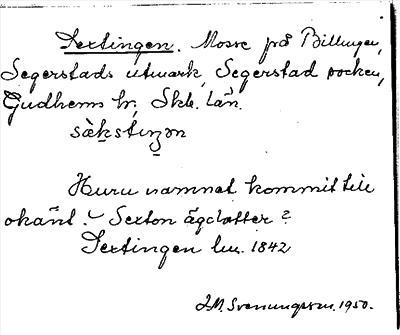 Sextingen. Mosse på Billingen,
Segerstads utmark, Segerstad socken,
Gudhems hr, Skb. län.
sàk̠stiŋ̠ən
Huru namnet kommit till
okänt. Sexton ägolotter?
Sextingen lm. 1842
J.M. Svenungsson. 1950.